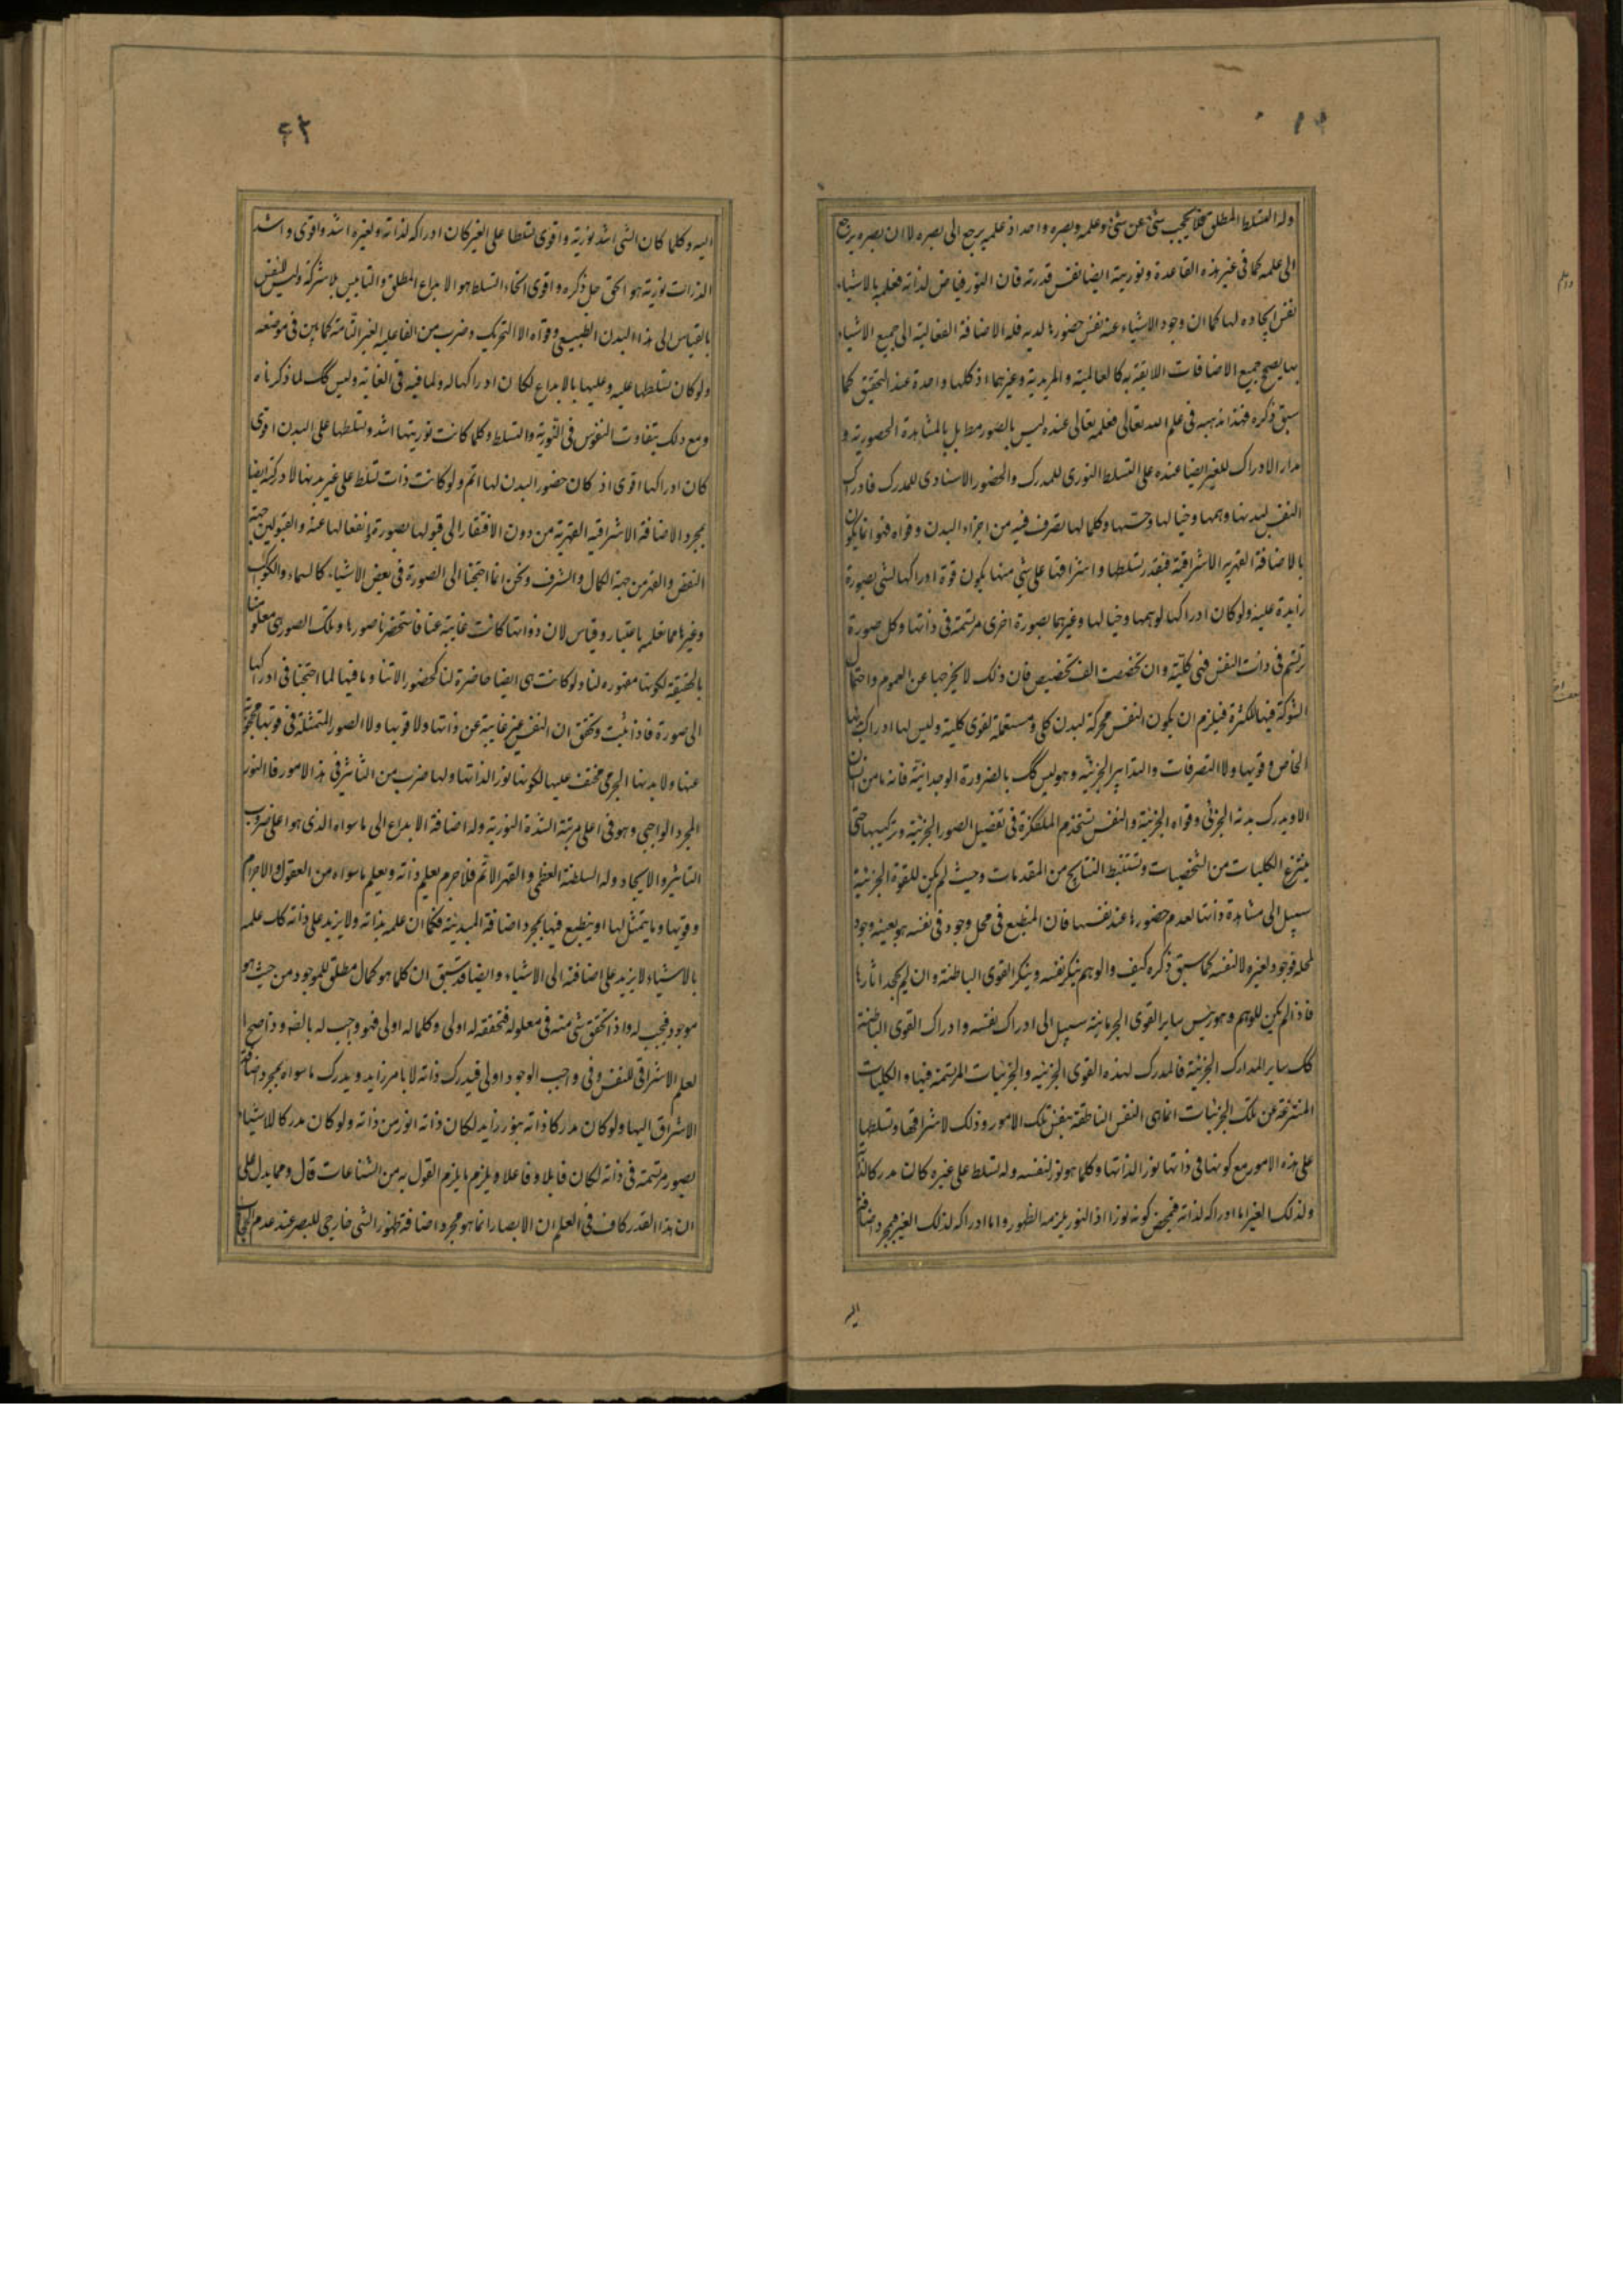 وله التسلط المطلق فلا يحجب شئ عن شئ وعلمه وبصره واحد اذ علمه يرجع الى بصره لا ان بصره يرجع
الى علمه كما فى غير هذه القاعدة ونوريته ايضا نفس قدرته فان النور فياض لذاته فعلمه بالاشياء
نفس ايجاده لها كما ان وجود الاشياء عنه نفس حضورها لديه فله الاضافة الفعالية الى جميع الاشياء
بها يصح جميع الاضافات اللايقة به كالعالمية والمريدية وغيرهما اذ كلها واحدة عند التحقيق كما
سبق ذكره فهذا مذهبه فى علم الله تعالى فعلمه تعالى عنده ليس بالصور مط بل بالمشاهدة الحضورية و
مدار الادراك للغير ايضا عنده على التسلط النورى للمدرك والحضور الاسنادى للمدرك فادراك
النفس لبدنها ووهمها وخيالها وحسها وكلما لها تصرف فيه من اجزاء البدن وقواه فهو انما يكون
بالاضافة القهرية الاشراقية فبقدر تسلطها واشراقها على شئ منها يكون قوة ادراكها لشئ بصورة
زايدة عليه ولو كان ادراكها لوهمها وخيالها وغيرهما بصورة اخرى مرتسمة فى ذاتها وكل صورة
ترتسم فى ذات النفس فهى كلية وان تخصصت الف تخصيص فان ذلك لا يخرجها عن العموم واحتمال
الشركة فيها لكثرة فيلزم ان يكون النفس محركة لبدن كلى ومستعملة لقوى كلية وليس لها ادراك بدنها
الخاص وقويها ولا التصرفات والتدابير الجزئية وهو ليس كك بالضرورة الوجدانية فانه ما من انسان
الا ويدرك بدنه الجزئى وقواه الجزئية والنفس تستخدم المتفكرة فى تفصيل الصور الجزئية وتركيبها حتى
ينتزع الكليات من الشخصيات وتستنبط النتايج من المقدمات وحيث لم يكن للقوة الجزئية
سبيل الى مشاهدة ذاتها لعدم حضورها عند نفسها فان المنطبع فى محل وجود فى نفسه هو بعينه وجود
لمحله فوجود لغيره لا لنفسه كما سبق ذكره كيف والوهم ينكر نفسه وينكر القوى الباطنة وان لم يجحد اثارها
فاذا لم يكن للوهم وهو رئيس ساير القوى الجرمانية سبيل الى ادراك نفسه وادراك القوى الباطنة
فكك ساير المدارك الجزئية فالمدرك لهذه القوى الجزئية والجزئيات المرتسمة فيها والكليات
المنتزعة عن تلك الجزئيات انما هى النفس الناطقة بنفس تلك الامور وذلك لاشراقها وتسلطها
على هذه الامور مع كونها فى ذاتها نورا لذاتها وكلما هو نور لنفسه وله تسلط على غيره كان مدركا لذاته
ولذلك الغير اما ادراكه لذاته فمحض كونه نورا اذ النور يلزمه الظهور واما ادراكه لذلك الغير فبمجرد اضافته
اليه
اليه وكلما كان الشئ اشد نورية واقوى تسلطا على الغير كان ادراكه لذاته ولغيره اشد واقوى واشد
الذوات نورية هو الحق جل ذكره واقوى انحاء التسلط هو الابداع المطلق والتاييس بلا شركة وليس للنفس
بالقياس الى هذاء البدن الطبيعى وقواه الا التحريك وضرب من الفاعلية الغير التامة كما بين فى موضعه
ولو كان تسلطها عليه وعليها بالابداع لكان ادراكها له ولما فيه فى الغاية وليس كك لما ذكرناه
ومع ذلك يتفاوت النفوس فى النورية والتسلط وكلما كانت نوريتها اشد وتسلطها على البدن اقوى
كان ادراكها اقوى اذ كان حضور البدن لها اتم ولو كانت ذات تسلط على غير بدنها لادركته ايضا
بمجرد الاضافة الاشراقية القهرية من دون الافتقار الى قبولها بصورة وانفعالها عنه والقبول من جهة
النقص والقهر من جهة الكمال والشرف ونحن انما احتجنا الى الصورة فى بعض الاشياء كالسماء والكواكب
وغيرها مما نعلمه باعتبار وقياس لان ذواتها كانت غايبة عنا فاستحضرنا صورها وتلك الصور هى معلومنا
بالحقيقة لكونها مقهورة لنا ولو كانت هى ايضا حاضرة لنا كحضور الاتنا وما فيها لما احتجنا فى ادراكها
الى صورة فاذا ثبت وتحقق ان النفس غير غايبة عن ذاتها ولا قويها ولا الصور المتمثلة فى قويها محجوبة
عنها ولا بدنها الجرمى مختف عليها لكونها نورا لذاتها ولها ضرب من التاثير فى هذه الامور فالنور
المجرد الواجبى وهو فى اعلى مرتبة الشدة النورية وله اضافة الابداع الى ما سواه الذى هو اعلى ضروب
التاثير والايجاد وله السلطنة العظمى والقهر الاتم فلا جرم يعلم ذاته ويعلم ما سواه من العقول والاجرام
وقويها وما يتمثل لها او ينطبع فيها بمجرد اضافة المبدئية فكما ان علمه بذاته ولا يزيد على ذاته كك علمه
بالاشياء لا يزيد على اضافته الى الاشياء وايضا قد سبق ان كلما هو كمال مطلق للموجود من حيث هو
موجود فيجب له واذا تحقق شئ منه فى معلوله فتحققه له اولى وكلما له اولى فهو واجب له بالضرورة واذا صح ا
لعلم الاشراقى للنفس وفى واجب الوجود اولى فيدرك ذاته لا بامر زايد ويدرك ما سواه بمجرد اضافة
الاشراق اليها ولو كان مدركا ذاته بنور زايد لكان ذاته انور من ذاته ولو كان مدركا للاشياء
بصور مرتسمة فى ذاته لكان قابلا وفاعلا ويلزم ما يلزم القول به من الشناعات قال ومما يدل على
ان هذا القدر كاف فى العلم ان الابصار انما هو مجرد اضافة ظهور الشئ خارجى للبصر عند عدم الحجاب